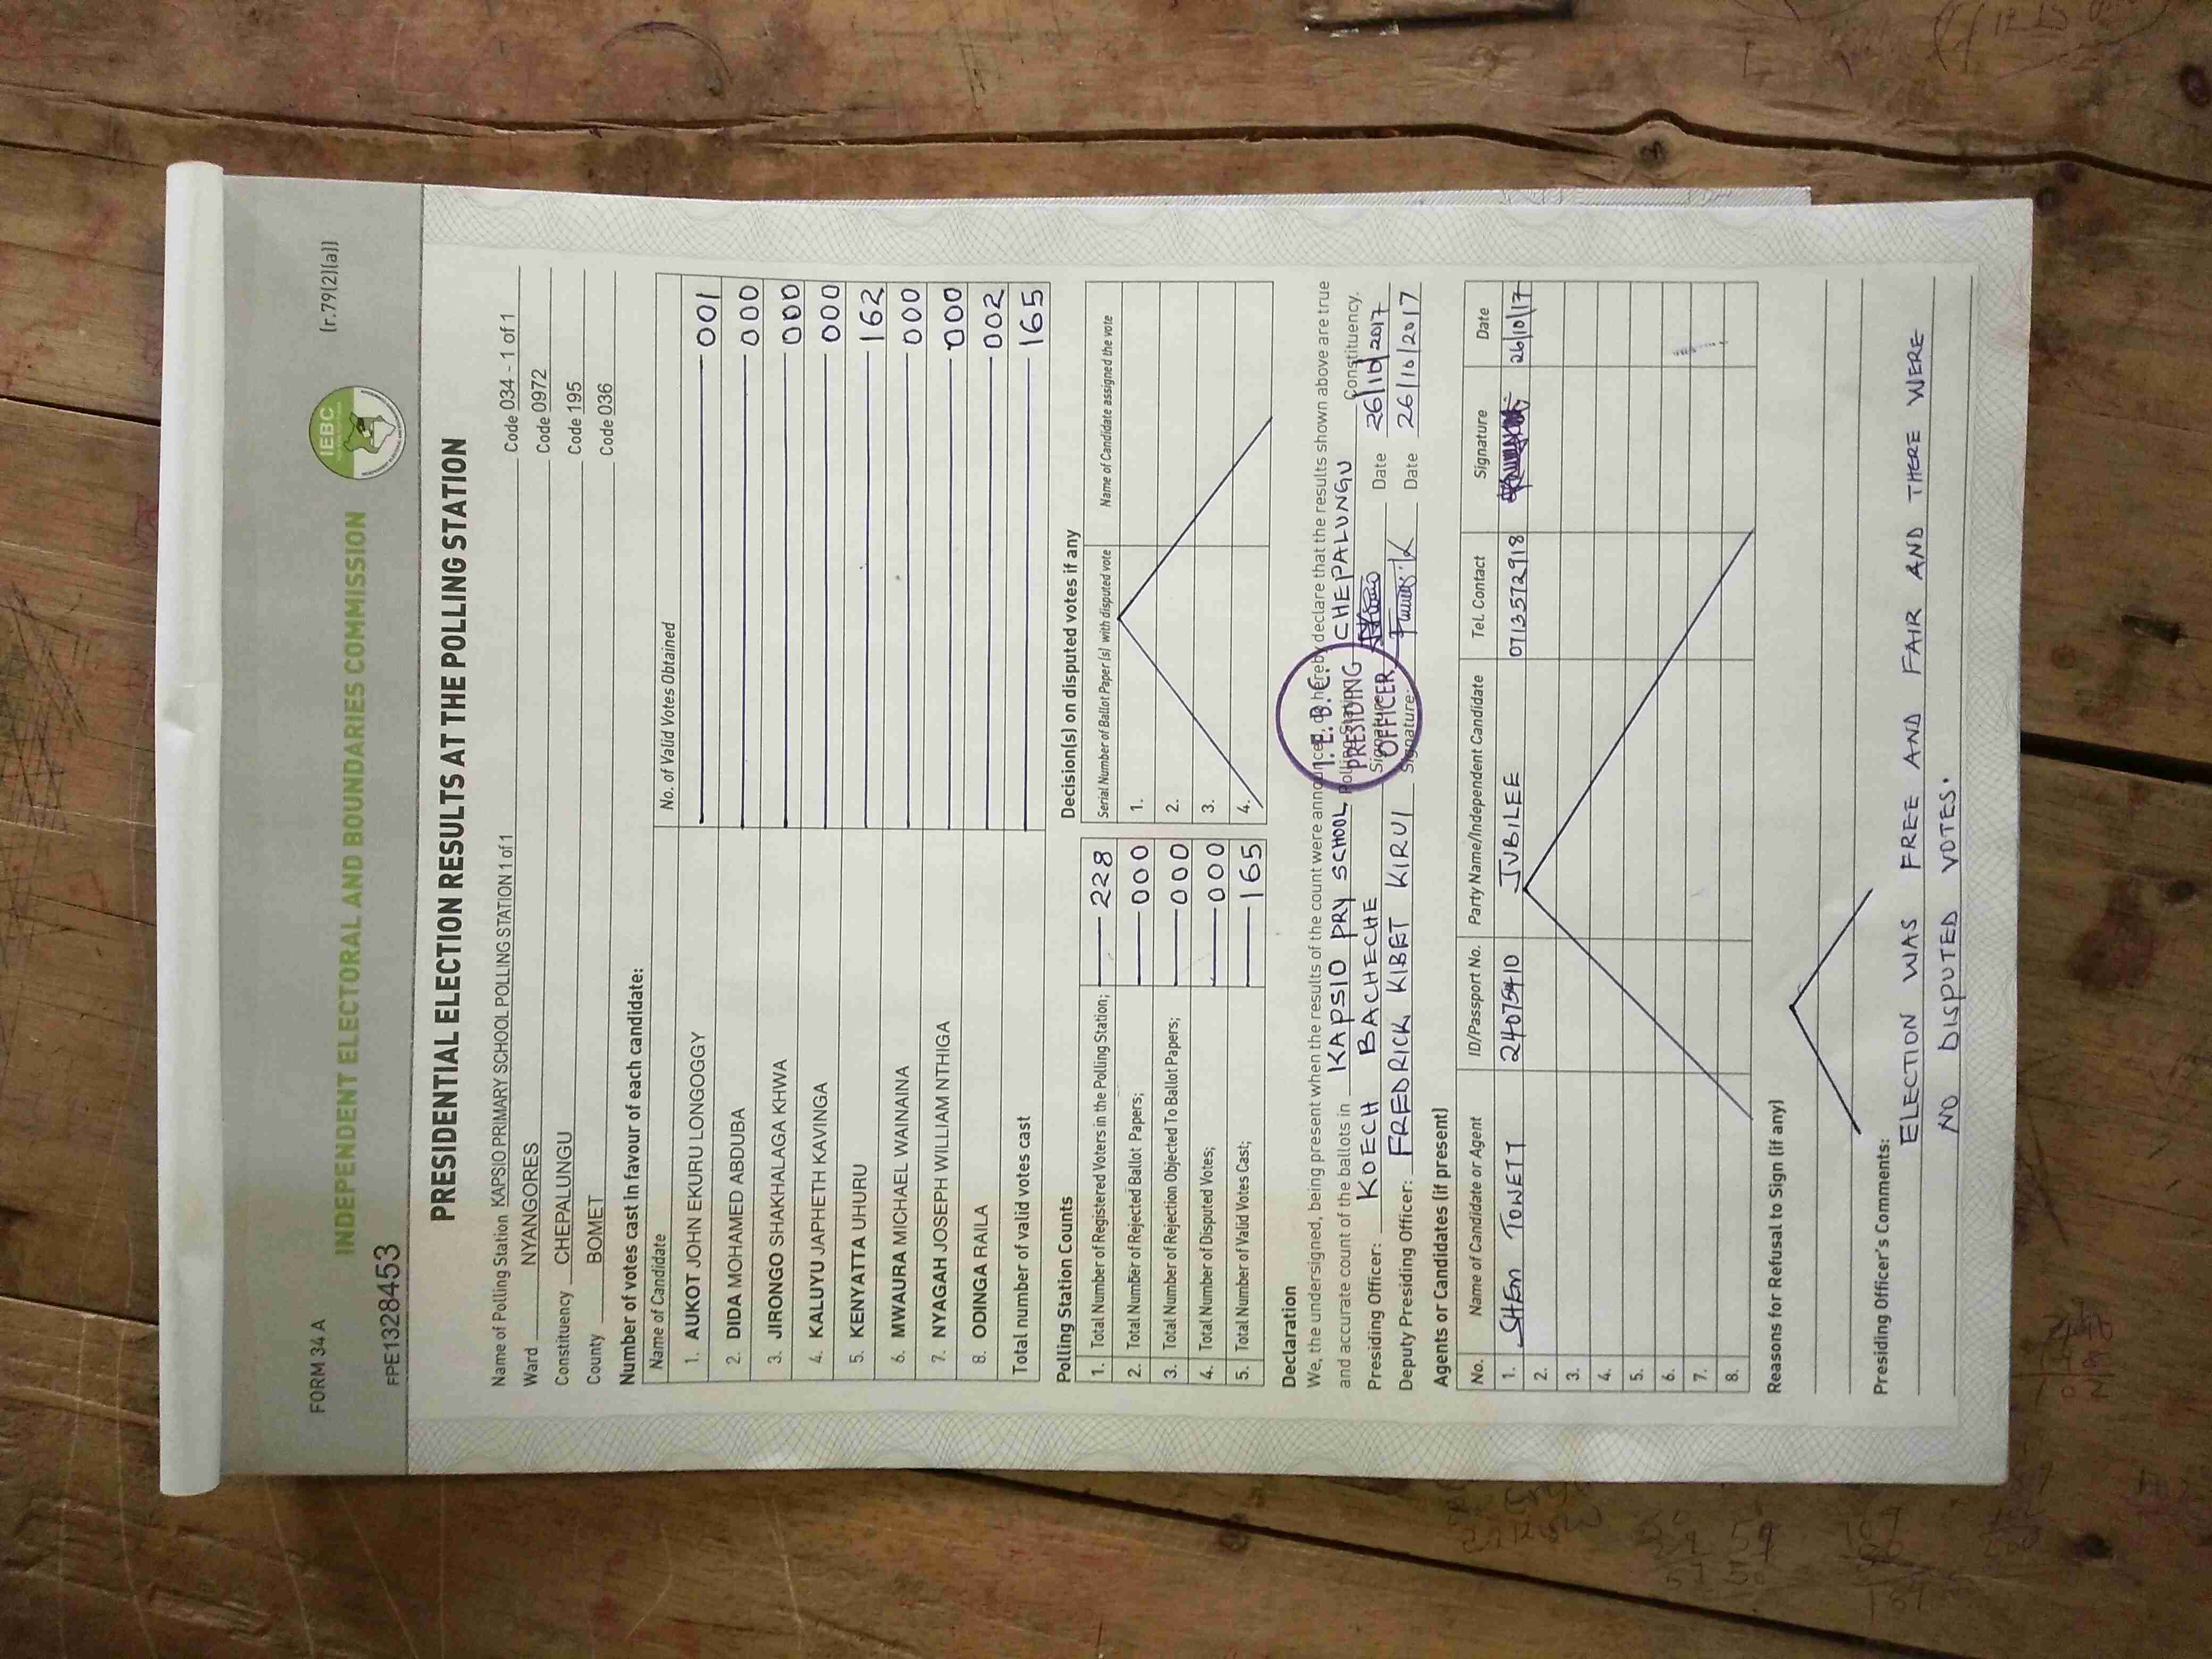 FORM 34 A
INDEPENDENT ELECTORAL AND BOUNDARIES COMMISSION
IEBC
(r.79(2)(a))
FPE1328453
PRESIDENTIAL ELECTION RESULTS AT THE POLLING STATION
Name of Polling Station KAPSIO PRIMARY SCHOOL POLLING STATION 1 of 1 Code 034 - 1 of 1
Ward NYANGORES Code 0972
Constituency CHEPALUNGU Code 195
County BOMET Code 036
Number of votes cast in favour of each candidate:
Name of Candidate No. of Valid Votes Obtained
1. AUKOT JOHN EKURU LONGOGGY 001
2. DIDA MOHAMED ABDUBA 000
3. JIRONGO SHAKHALAGA KHWA 000
4. KALUYU JAPHETH KAVINGA 000
5. KENYATTA UHURU 162
6. MWAURA MICHAEL WAINAINA 000
7. NYAGAH JOSEPH WILLIAM NTHIGA 000
8. ODINGA RAILA 002
Total number of valid votes cast 165
Polling Station Counts
1. Total Number of Registered Voters in the Polling Station; 228
2. Total Number of Rejected Ballot Papers; 000
3. Total Number of Rejection Objected To Ballot Papers; 000
4. Total Number of Disputed Votes; 000
5. Total Number of Valid Votes Cast; 165
Decision(s) on disputed votes if any
Serial Number of Ballot Paper (s) with disputed vote Name of Candidate assigned the vote
1.
2.
3.
4.
Declaration
We, the undersigned, being present when the results of the count were announced, do hereby declare that the results shown above are true
and accurate count of the ballots in KAPSIO PRY SCHOOL Polling Station, CHEPALUNGU Constituency.
Presiding Officer: KOECH BACHECHE Signature: Date 26/10/2017
Deputy Presiding Officer: FREDRICK KIBET KIRUI Signature: Date 26/10/2017
I.E.B.C.
PRESIDING
OFFICER
Agents or Candidates (if present)
No. Name of Candidate or Agent ID/Passport No. Party Name/Independent Candidate Tel. Contact Signature Date
1. SHEM TOWETT JUBILEE 0713572918 26/10/17
2.
3.
4.
5.
6.
7.
8.
Reasons for Refusal to Sign (if any)
Presiding Officer's Comments:
ELECTION WAS FREE AND FAIR AND THERE WERE
NO DISPUTED VOTES.